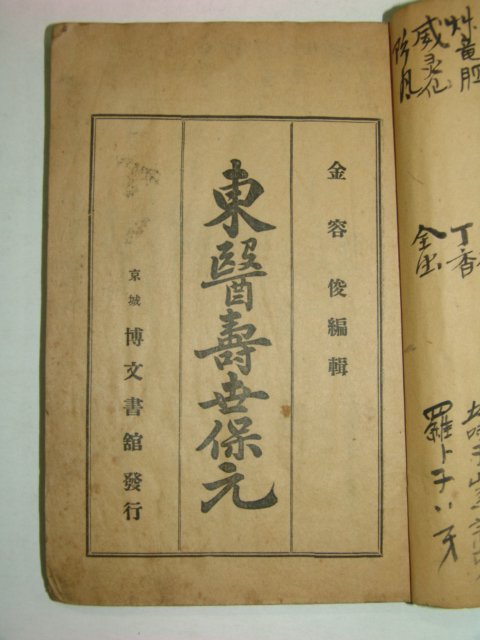 金容俊編輯
東醫壽世保元
京城 博文書舘 發行
草竜胆
威灵仙
防風
丁香
全虫
羅卜子